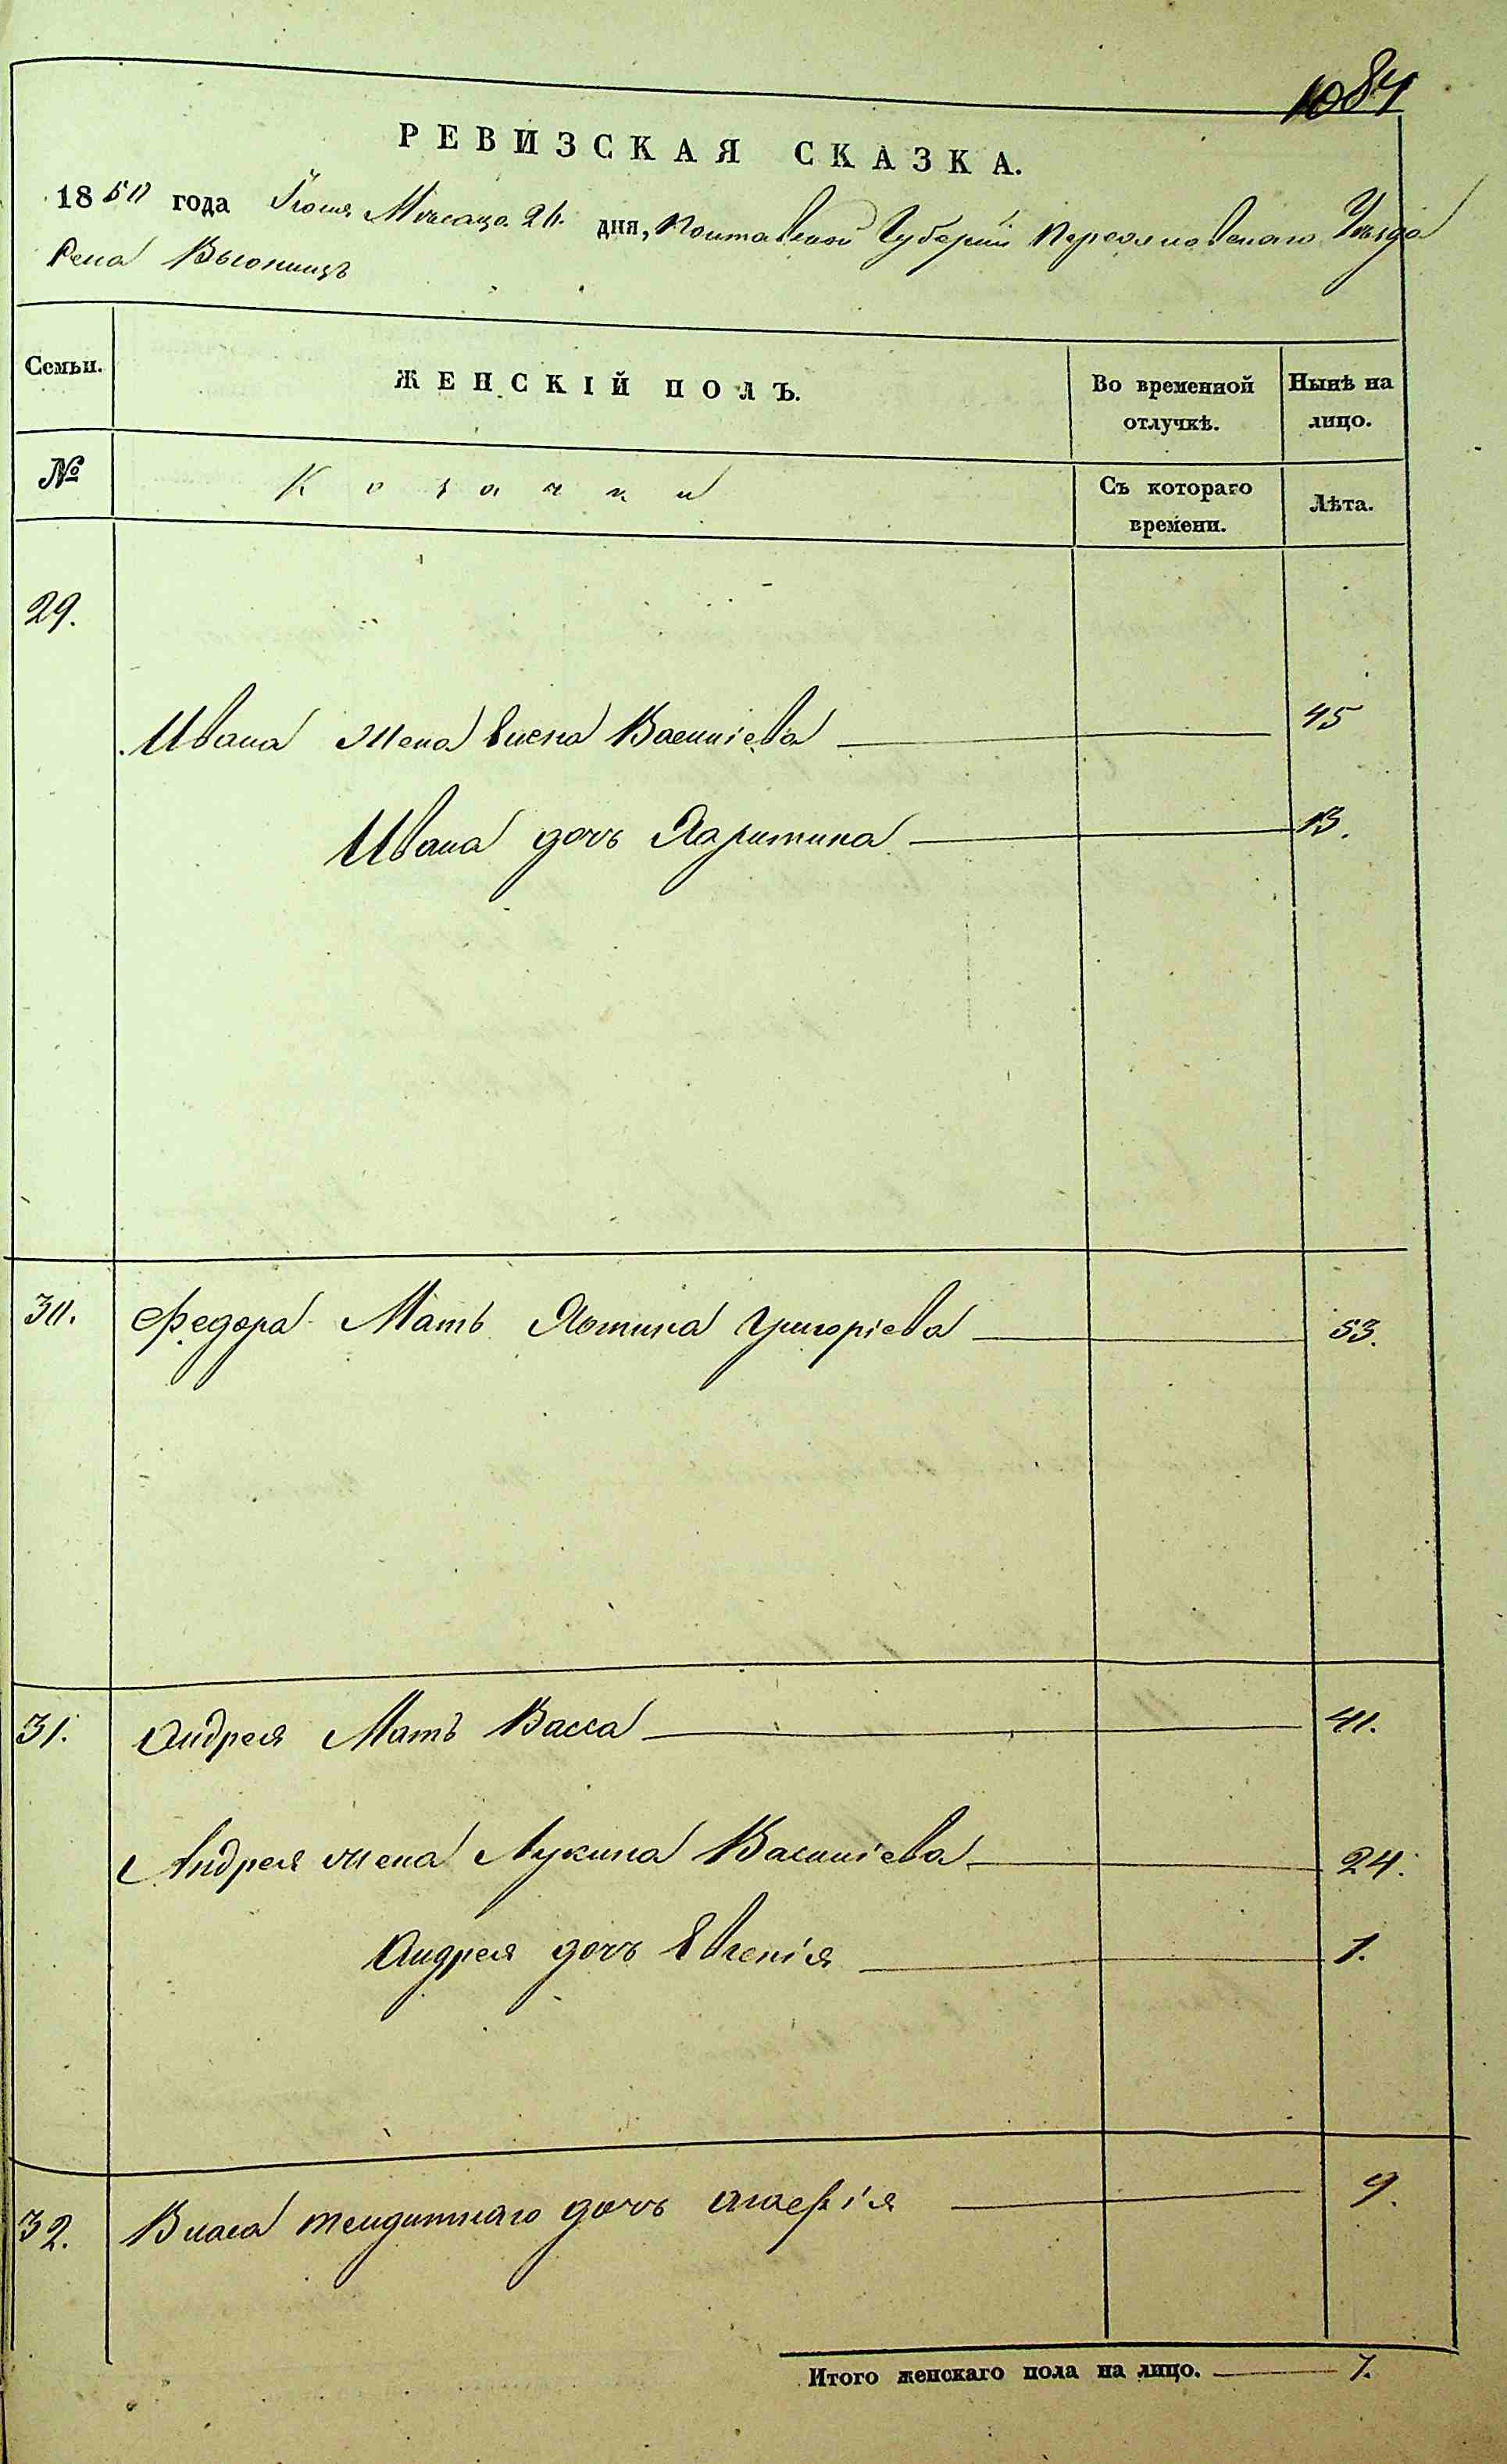 1084
РЕВИЗСКАЯ СКАЗКА.
1850 года Іюня Мѣсяца 26. дня, Полтавской Губерніи Переяславскаго Уѣзда
Села Вьюнищъ
Семьи. ЖЕНСКІЙ ПОЛЪ. Во временной отлучкѣ. Нынѣ на лицо.
№ Козачки Съ котораго времени. Лѣта.
29.
Ивана жена Елена Василіева 45
Ивана дочь Харитина 13.
30. Федора Мать Григоріева 53.
31. Андрея Мать Васса
Андрея жена Лукина Василіева 24.
Андрея дочь Евгенія 1.
32. Власа дочь Агафія 9.
Итого женскаго пола на лицо. 7.